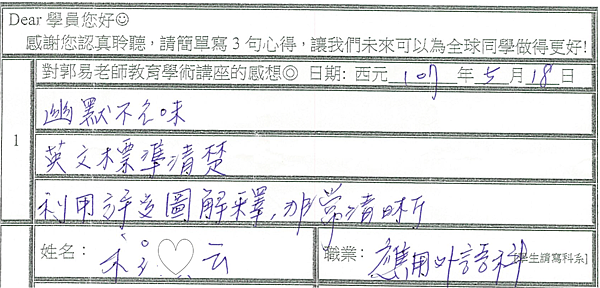 Dear 學員您好☺
感謝您認真聆聽，請簡單寫 3 句心得，讓我們未來可以為全球同學做得更好!
對郭易老師教育學術講座的感想◎ 日期: 西元 107 年 5 月 18 日
1
幽默不乏味
英文標準清楚
利用許多圖解釋，非常清晰
姓名： ♡云
職業： 應用外語科 [學生請寫科系]